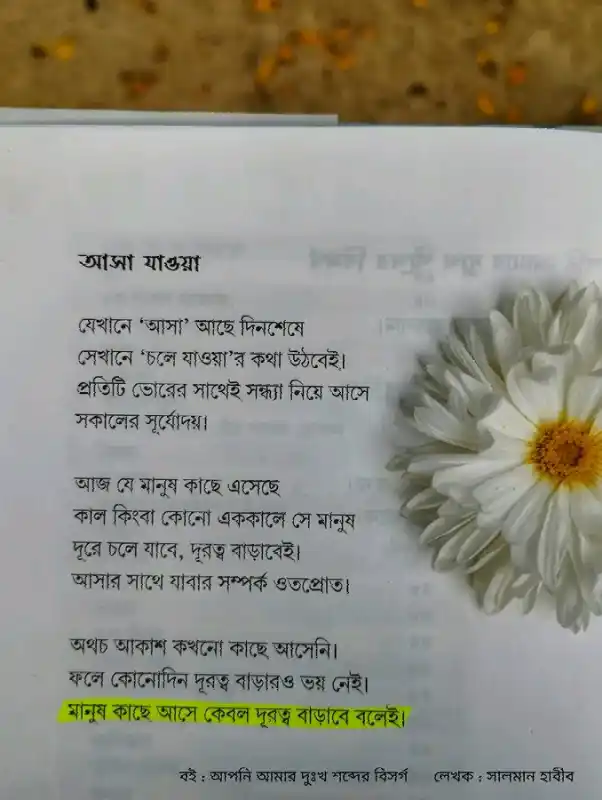 আসা যাওয়া
যেখানে ‘আসা’ আছে দিনশেষে
সেখানে ‘চলে যাওয়া’র কথা উঠবেই।
প্রতিটি ভোরের সাথেই সন্ধ্যা নিয়ে আসে
সকালের সূর্যোদয়।
আজ যে মানুষ কাছে এসেছে
কাল কিংবা কোনো এককালে সে মানুষ
দূরে চলে যাবে, দূরত্ব বাড়াবেই।
আসার সাথে যাবার সম্পর্ক ওতপ্রোত।
অথচ আকাশ কখনো কাছে আসেনি।
ফলে কোনোদিন দূরত্ব বাড়ারও ভয় নেই।
মানুষ কাছে আসে কেবল দূরত্ব বাড়াবে বলেই।
বই : আপনি আমার দুঃখ শব্দের বিসর্গ লেখক : সালমান হাবীব